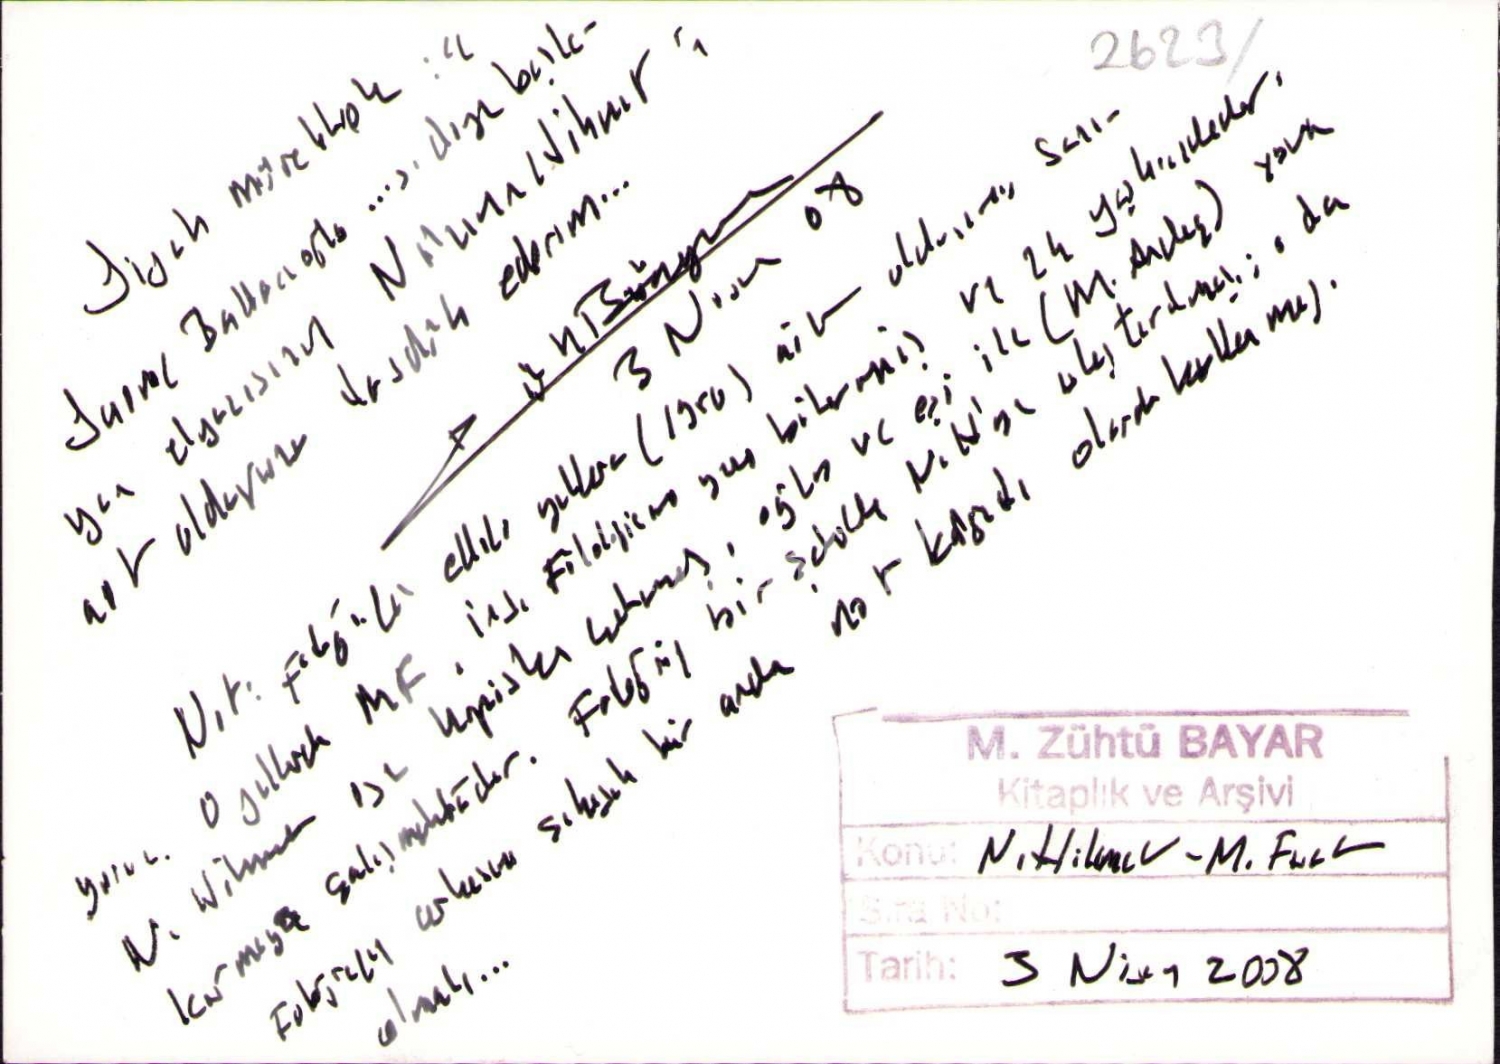 2623/
Siyah mürekkeple : "
İsmail Baltacıoğlu .... diye başla-
yan elyazısının Nâzım Hikmet'
not olduğunu tasdik ederim...
3 Nisan 08
Not: Fotoğrafın ellili yıllara (1950) ait olduğunu sanı-
yorum. O yıllarda MF, İng. Filolojisine yeni bitirmiş ve 24 yaşlarındadır.
N. Hikmet ise hapisten çıkmış, oğlu ve eşi ile (M. Andaç) yuva
kurmaya çalışmaktadır. Fotoğraf bir şekilde N.H.'ye ulaştırılmalı; o da
Fotoğrafın arkasını sıkışık bir anda not kâğıdı olarak kullanmış
olmalı...
M. Zühtü BAYAR
Kitaplık ve Arşivi
Konu: N. Hikmet - M. Fuat
Sıra No:
Tarih: 3 Nisan 2008